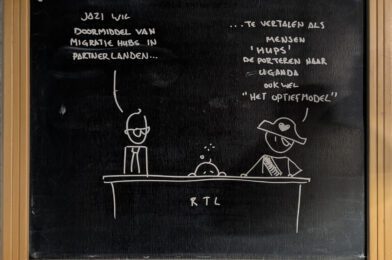 JOZI WIL
DOORMIDDEL VAN
MIGRATIE HUBS IN
PARTNERLANDEN...
...TE VERTALEN ALS
MENSEN
'HUPS'
DEPORTEREN NAAR
UGANDA
OOK WEL
"HET OPTIEFMODEL"
RTL